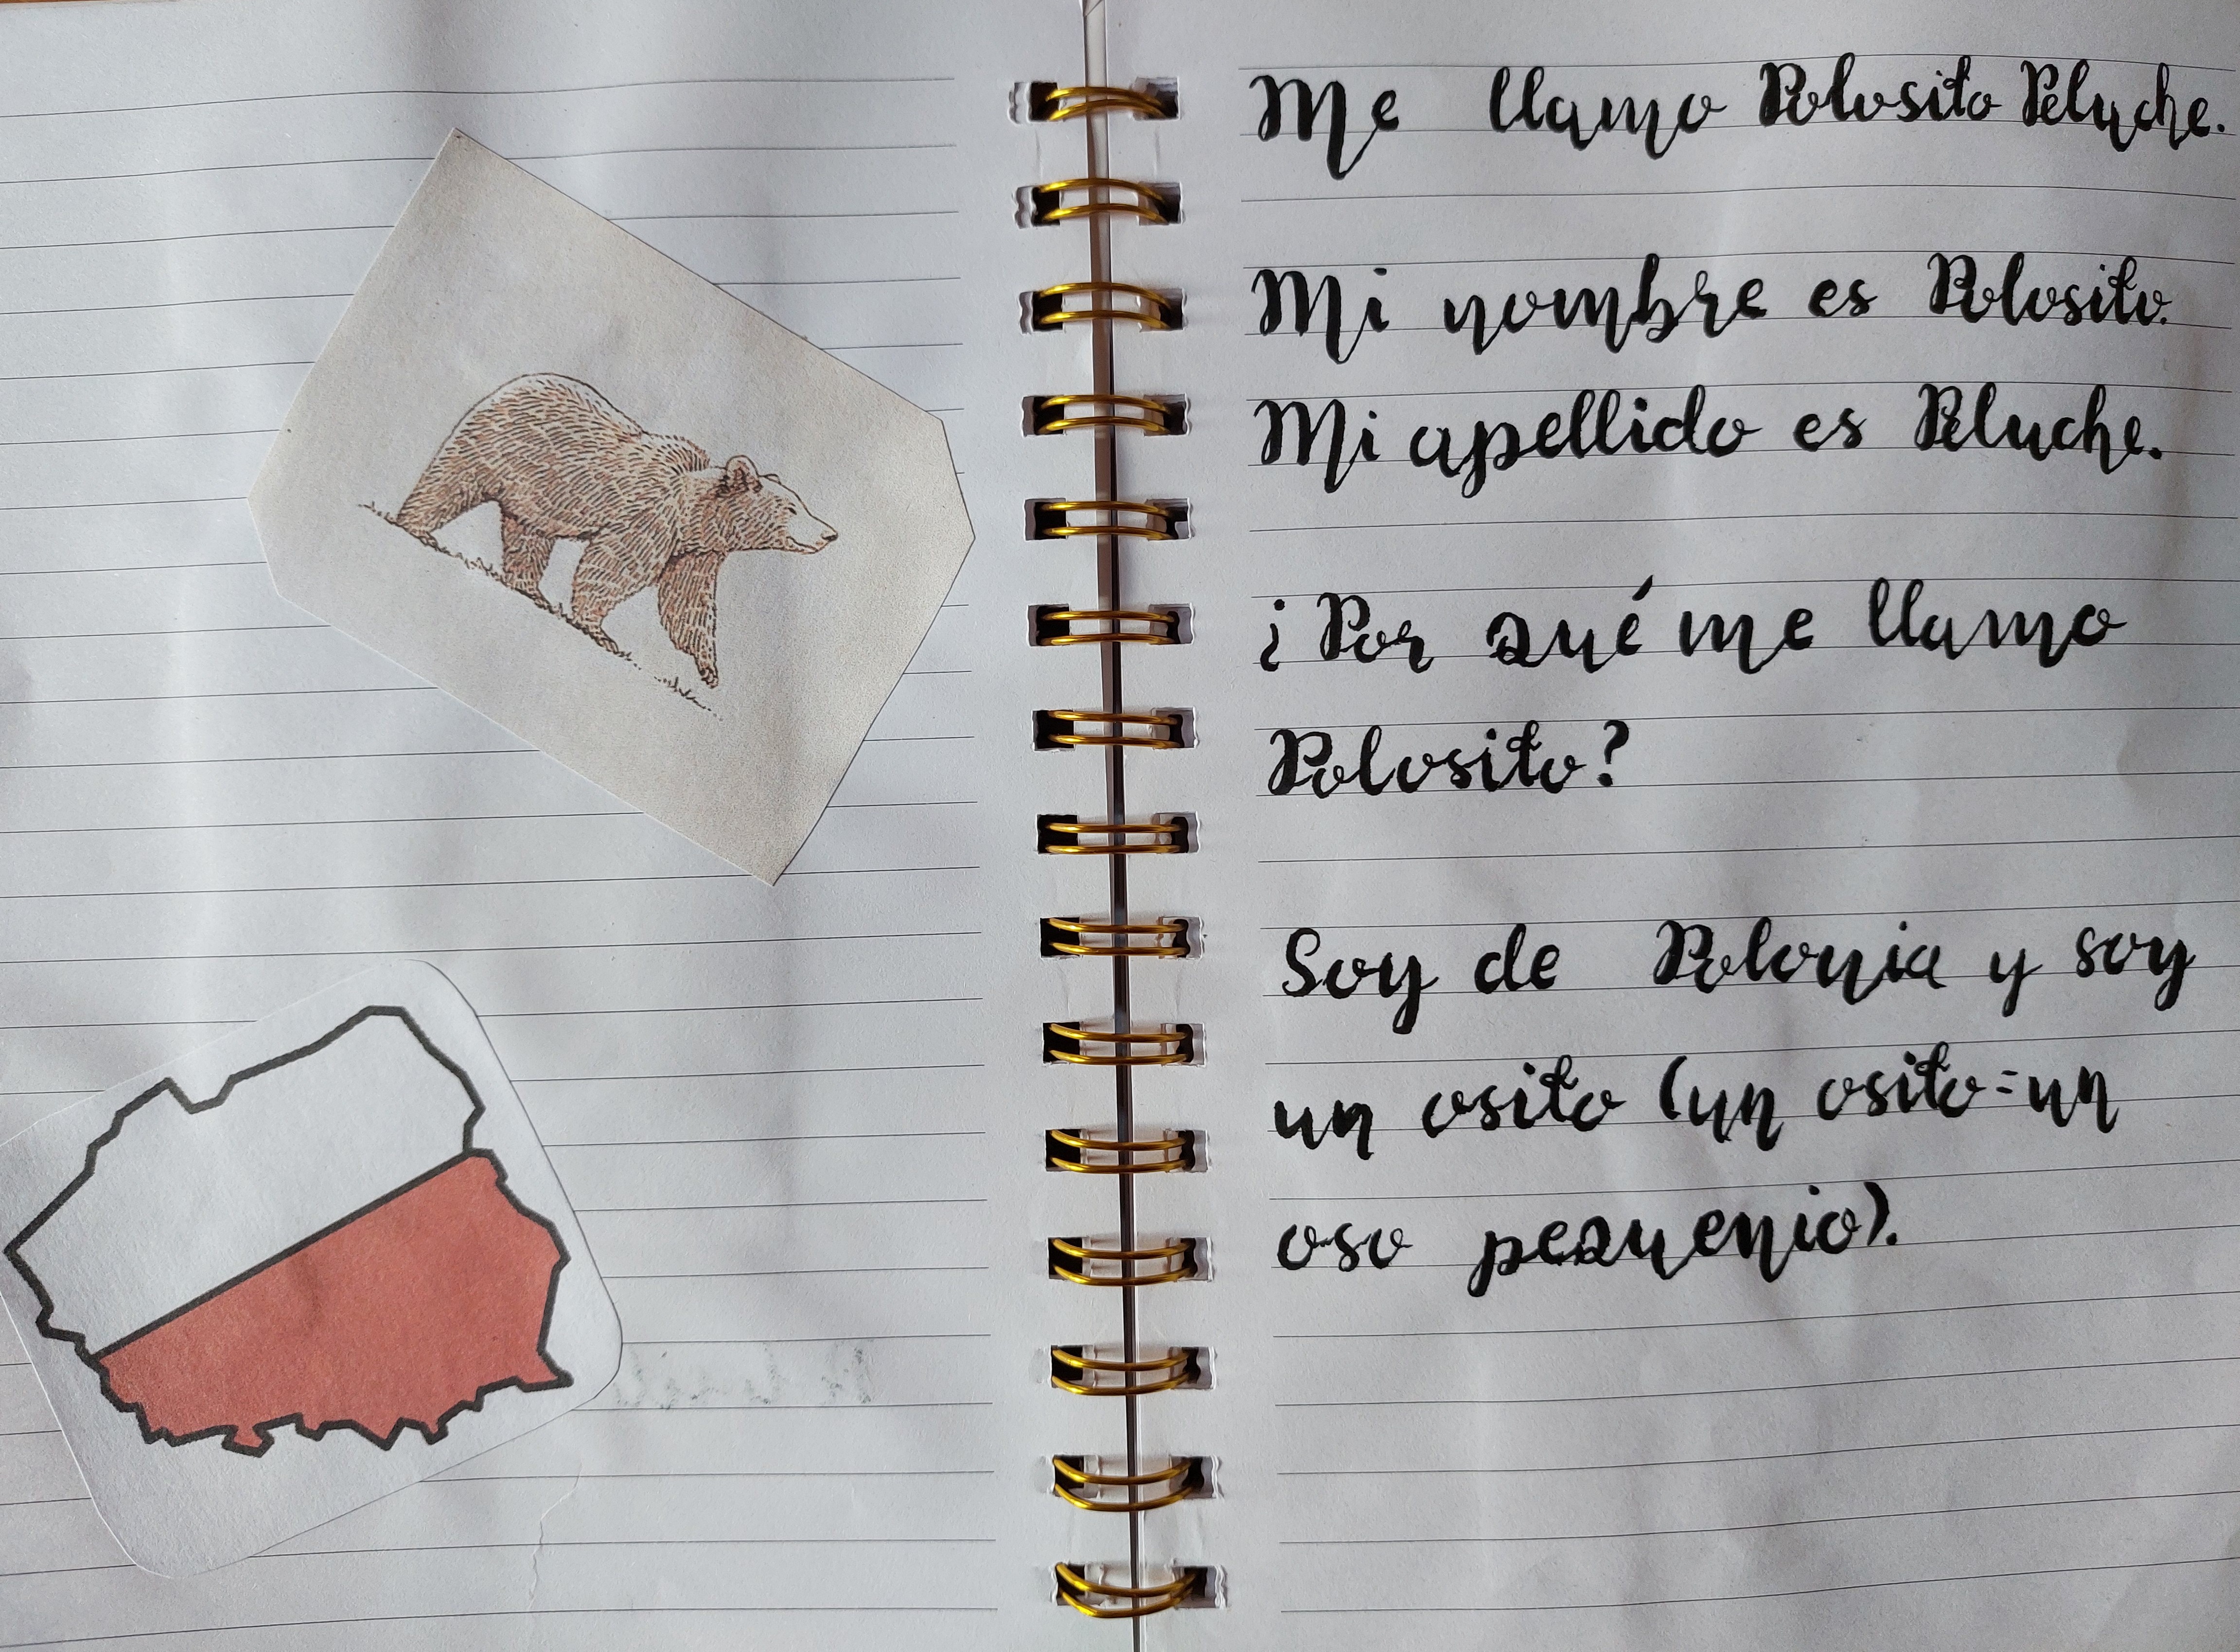 Me llamo Polosito Peluche.
Mi nombre es Polosito.
Mi apellido es Peluche.
¿Por qué me llamo
Polosito?
Soy de Polonia y soy
un osito (un osito=un
oso pequenio).